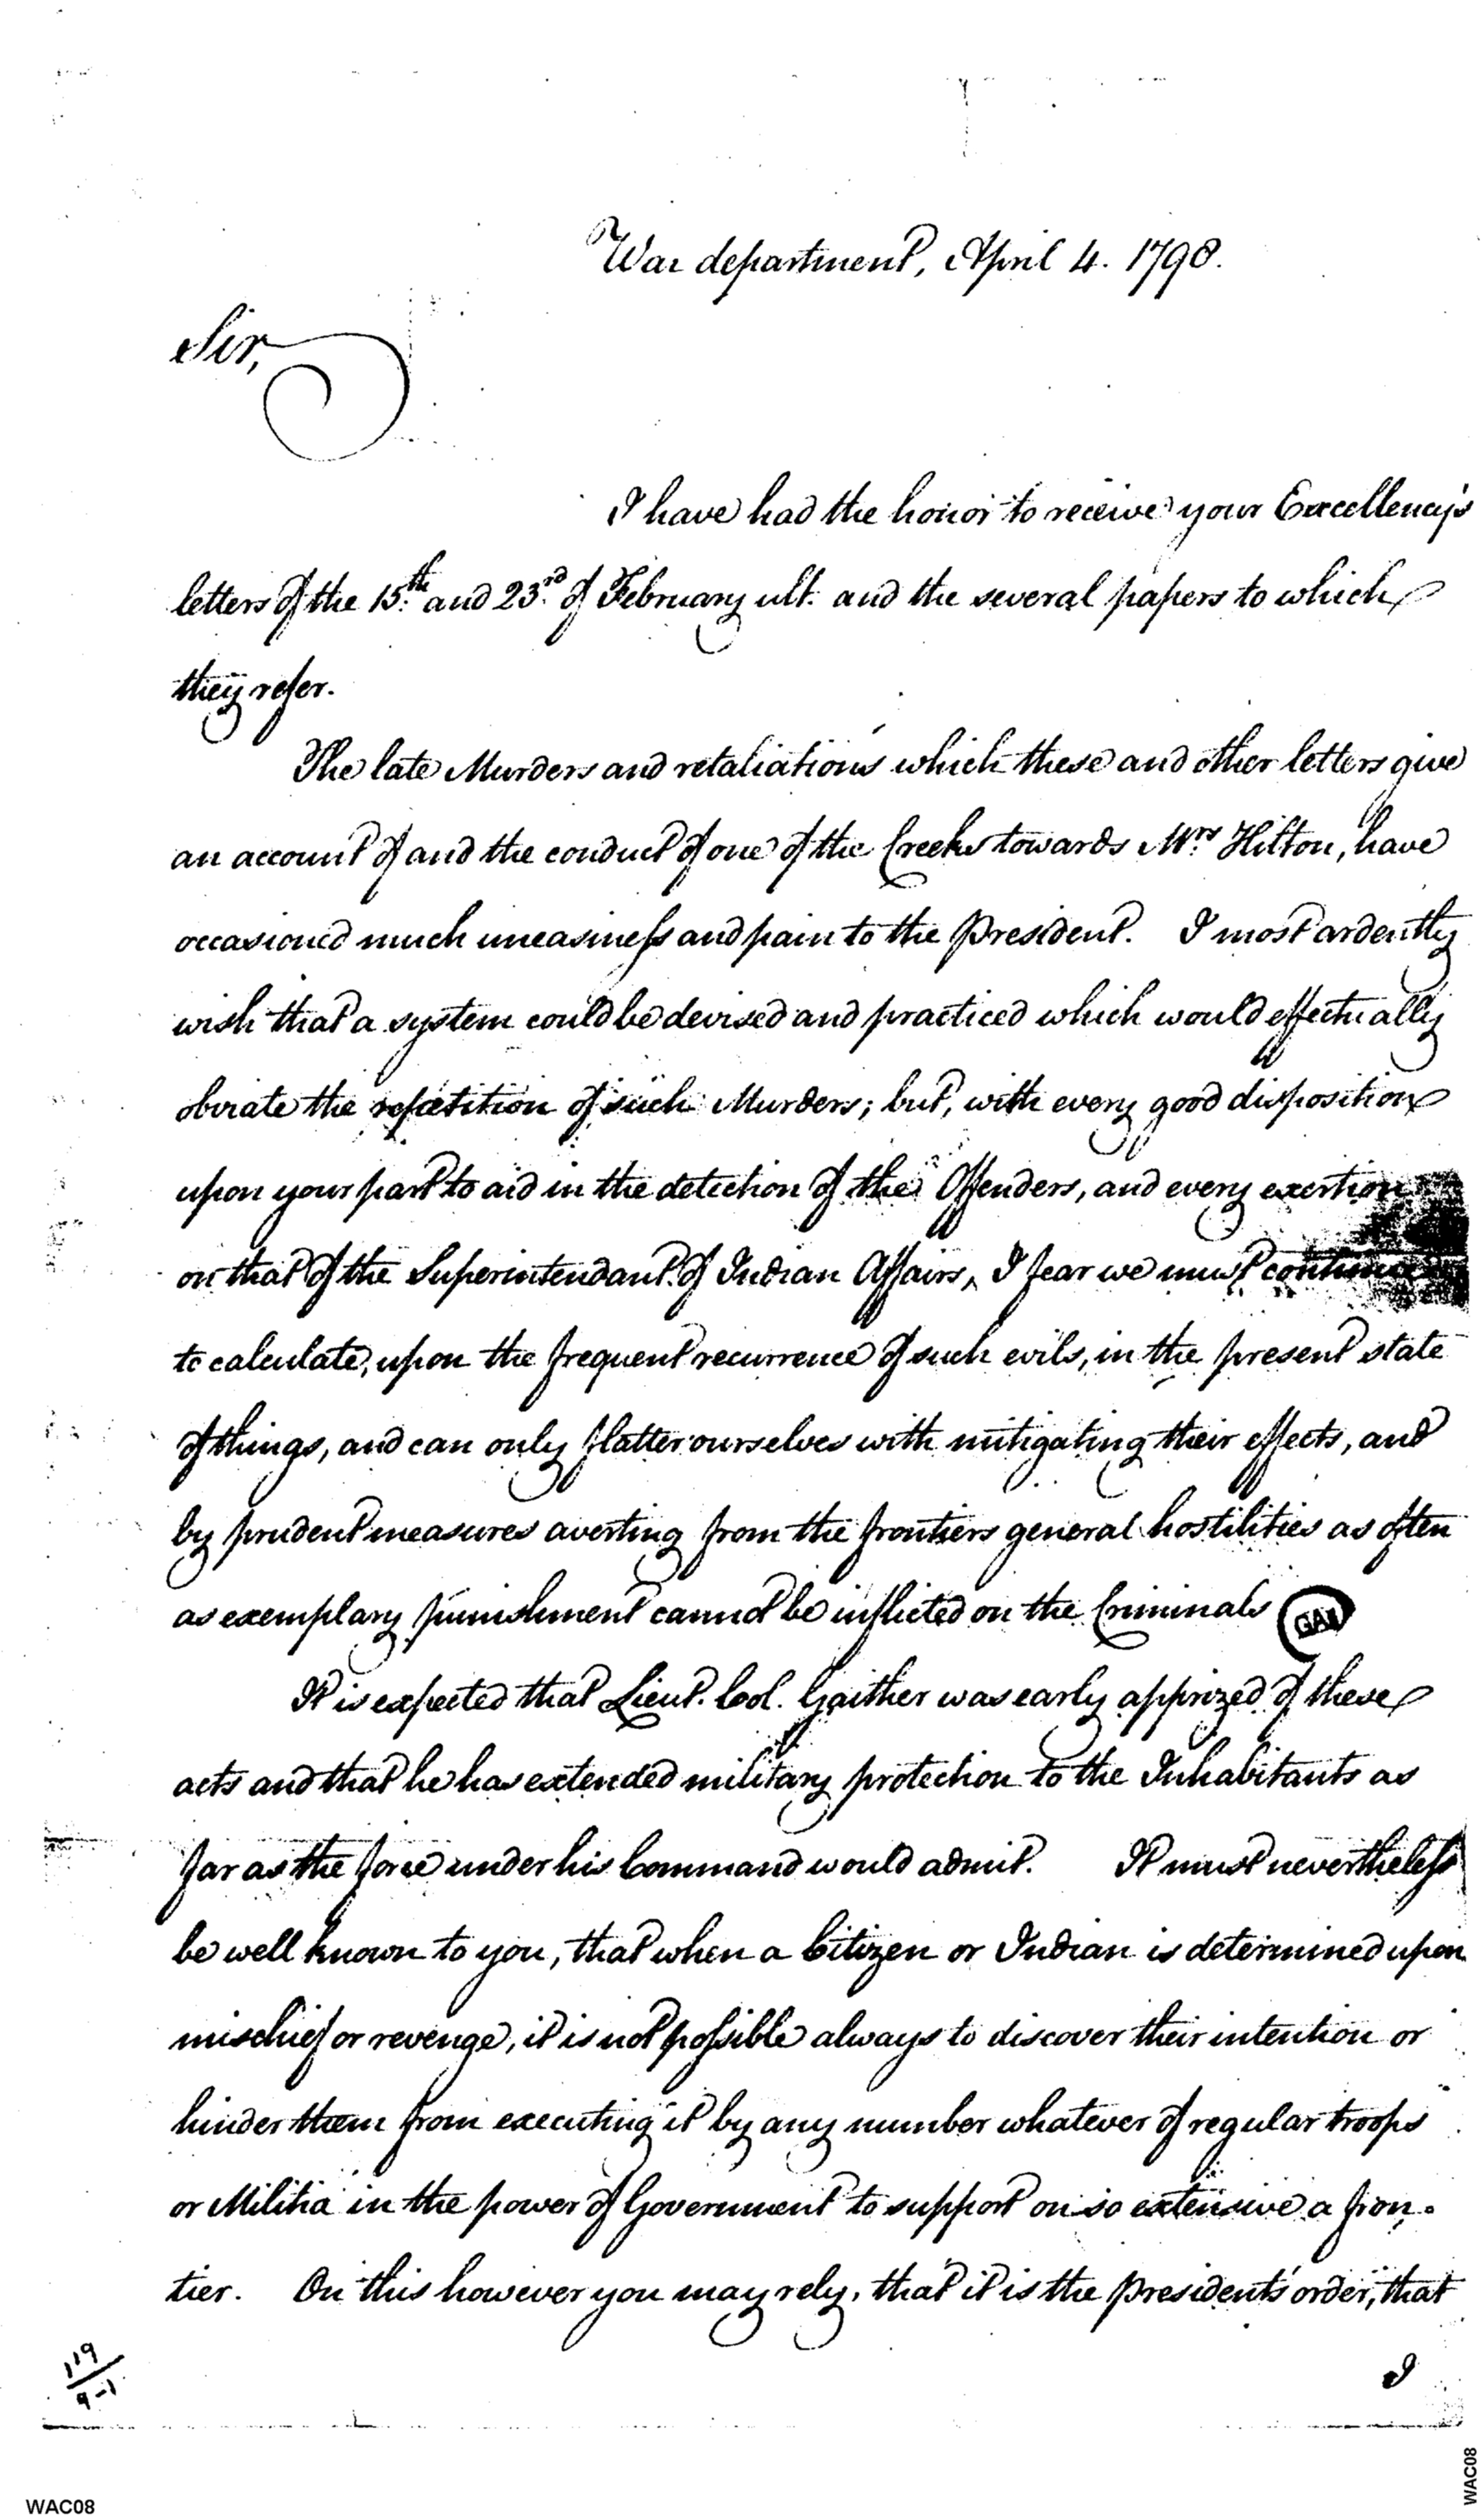 War department, April 4. 1798.
Sir,
I have had the honor to receive your Excellency's
letters of the 15.th and 23.rd of February ult. and the several papers to which
they refer.
The late Murders and retaliations which these and other letters give
an account of and the conduct of one of the Creeks towards Mrs. Hilton, have
occasioned much uneasiness and pain to the President. I most ardently
wish that a system could be devised and practiced which would effectually
obviate the repetition of such Murders; but, with every good disposition
upon your part to aid in the detection of the Offenders, and every exertion
on that of the Superintendant of Indian Affairs, I fear we must continue
to calculate, upon the frequent recurrence of such evils, in the present state
of things, and can only flatter ourselves with mitigating their effects, and
by prudent measures averting from the frontiers general hostilities as often
as exemplary punishment cannot be inflicted on the Criminals GAX
It is expected that Lieut. Col. Gaither was early apprized of these
acts and that he has extended military protection to the Inhabitants as
far as the force under his Command would admit. It must nevertheless
be well known to you, that when a Citizen or Indian is determined upon
mischief or revenge, it is not possible always to discover their intention or
hinder them from executing it by any number whatever of regular troops
or Militia in the power of Government to support on so extensive a fron-
tier. On this however you may rely, that it is the Presidents order, that
I
119
9-1
WAC08
WAC08